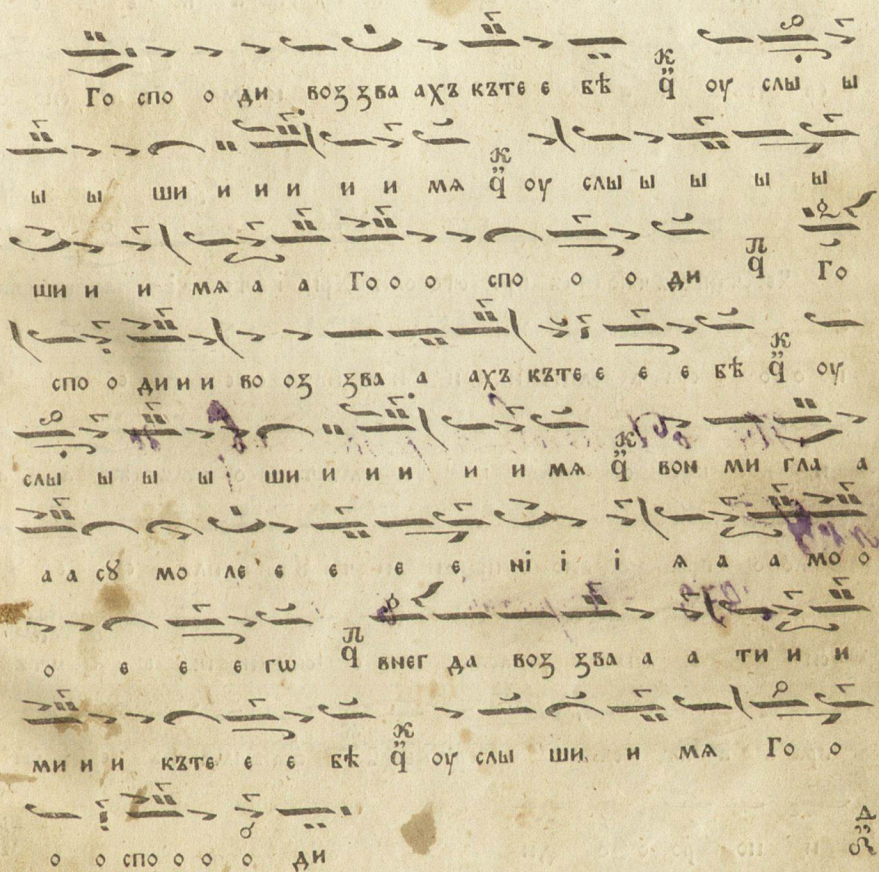 Го спо о ди воз зва ахъ къте е бѣ к҃ q̈ оу слы ы
ы ы ши и и и и и мѧ q̈ оу слы ы ы ы ы
ши и и мѧ а а Го о о спо о о ди п q̈ Го
спо о ди и и во оз зва а ахъ къте е е е бѣ q̈ оу
слы ы ы ы ши и и и и и мѧ q̈ вон ми гла а
а а сꙋ мо ле е е е е ні і і ѧ а а мо о
о е е е гѡ п q̈ внег да воз зва а а ти и и
ми и и къте е е бѣ к q̈ оу слы ши и мѧ Го о
о о спо о о о ди